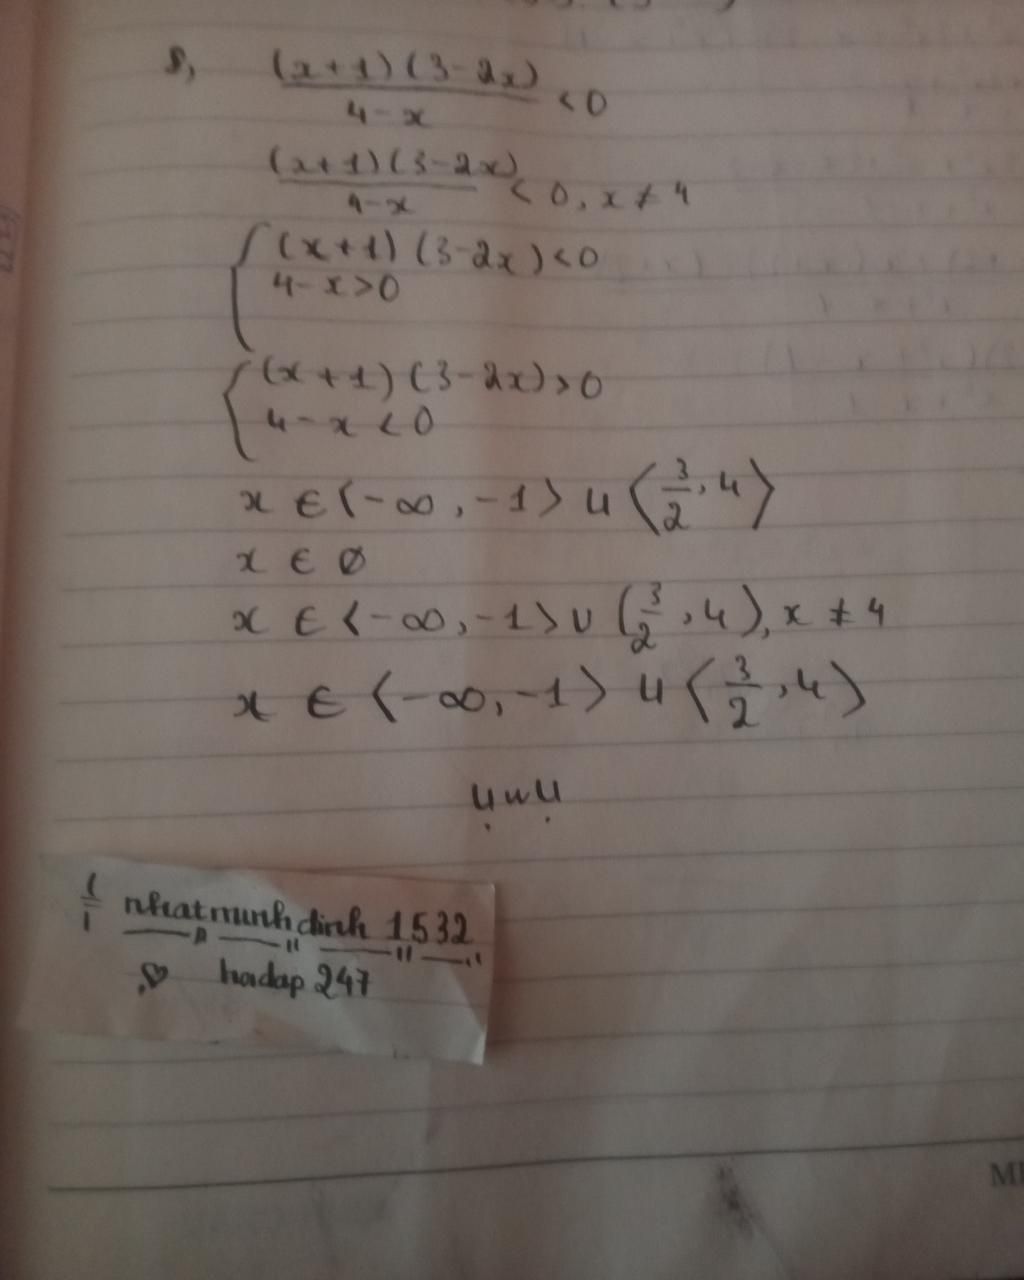 8, (x+1)(3-2x)/4-x < 0
(x+1)(3-2x)/4-x < 0, x ≠ 4
(x+1)(3-2x)<0
4-x>0
(x+1)(3-2x)>0
4-x<0
x ∈ ⟨-∞, -1⟩ ∪ ⟨3/2, 4⟩
x ∈ ∅
x ∈ ⟨-∞, -1⟩ ∪ (3/2, 4), x ≠ 4
x ∈ ⟨-∞, -1⟩ ∪ ⟨3/2, 4⟩
ụwụ
nhatminhdinh 1532
hoidap 247